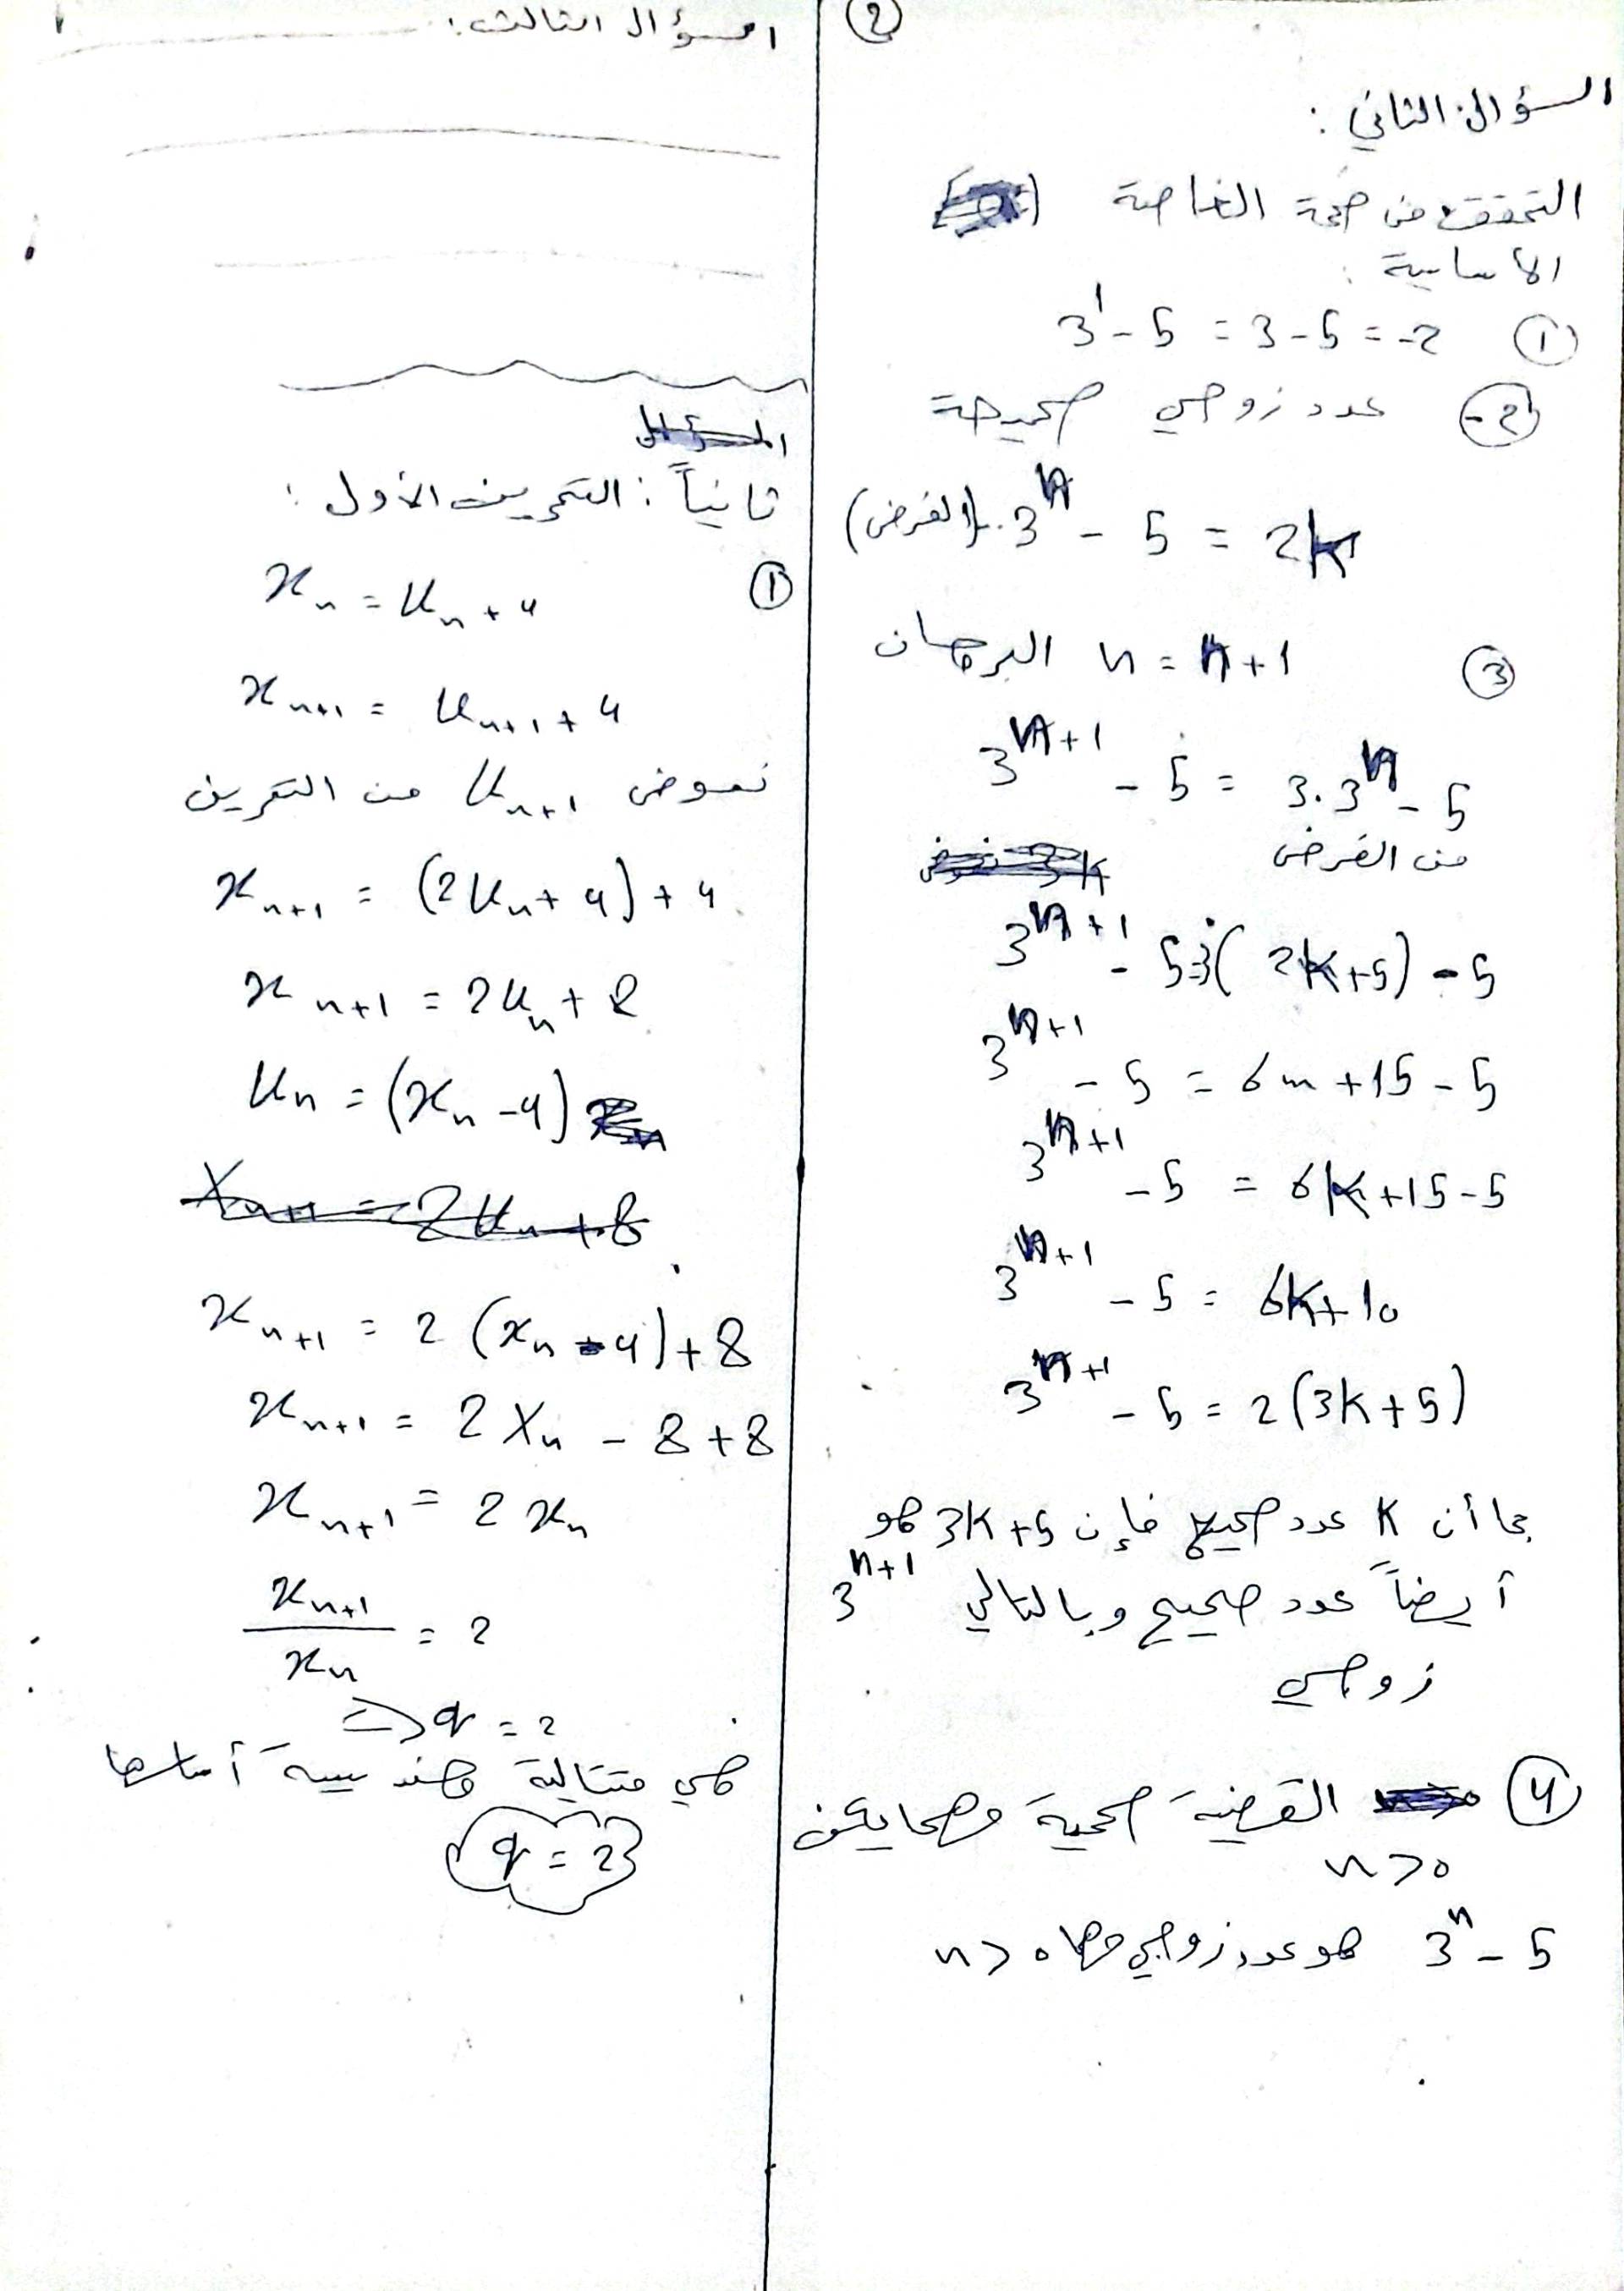 ②
السؤال الثاني :
التحقق من صحة الخاصة
الاساسية :
① 3¹ - 5 = 3 - 5 = -2
(-2) عدد زوجي صحيحة
3ⁿ - 5 = 2k (الفرض)
③ n = n+1 البرهان
3ⁿ⁺¹ - 5 = 3.3ⁿ - 5
من الفرض
3ⁿ⁺¹ - 5 = 3(2k+5) - 5
3ⁿ⁺¹ - 5 = 6m + 15 - 5
3ⁿ⁺¹ - 5 = 6k + 15 - 5
3ⁿ⁺¹ - 5 = 6k + 10
3ⁿ⁺¹ - 5 = 2(3k + 5)
بما أن k عدد صحيح فإن 3k+5 هو
أيضاً عدد صحيح وبالتالي 3ⁿ⁺¹
زوجي
④ القضية صحية ومهما يكن
n > 0
3ⁿ - 5 هو عدد زوجي n > 0
السؤال الثالث :
ثانياً : التمرين الأول :
① xₙ = uₙ + 4
xₙ₊₁ = uₙ₊₁ + 4
نعوض uₙ₊₁ من التمرين
xₙ₊₁ = (2uₙ + 4) + 4
xₙ₊₁ = 2uₙ + 8
uₙ = (xₙ - 4)
xₙ₊₁ = 2uₙ + 8
xₙ₊₁ = 2(xₙ - 4) + 8
xₙ₊₁ = 2xₙ - 8 + 8
xₙ₊₁ = 2xₙ
xₙ₊₁ / xₙ = 2
⇒ q = 2
هي متتالية هندسية أساسها
q = 2